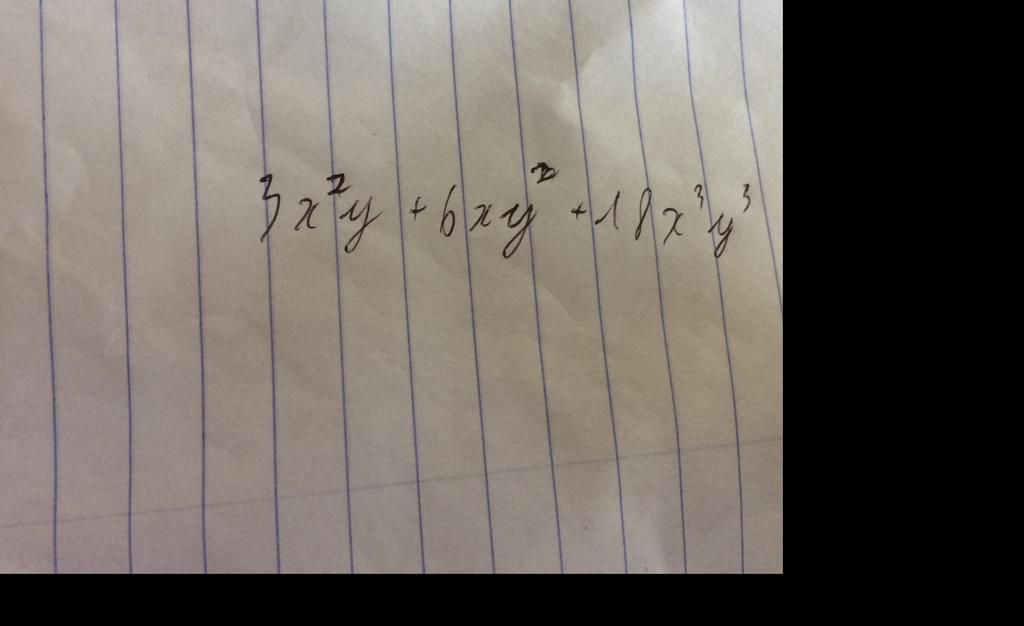 3x²y + 6xy² + 18x³y³